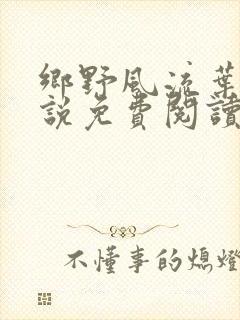 鄉野風流葉
說免費閱讀
不懂事的熄燈